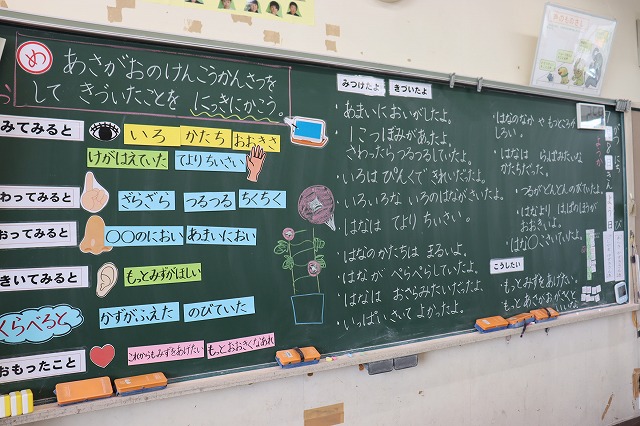 め
あさがおのけんこうかんさつを
して きづいたことを にっきにかこう。
みてみると
いろ
かたち
おおきさ
けがはえていた
てよりちいさい
わってみると
ざらざら
つるつる
ちくちく
おってみると
〇〇のにおい
あまいにおい
きいてみると
もっとみずがほしい
くらべると
かずがふえた
のびていた
おもったこと
これからもみずをあげたい
もっとおおきくなあれ
みつけたよ
きづいたよ
・あまいにおいがしたよ。
・にこつぼみがあったよ。
さわったらつるつるしていたよ。
・いろはぴんくできれいだったよ。
・いろいろないろのはながさいたよ。
・はなは てよりちいさい。
・はなのかたちは まるいよ。
・はなが ぺらぺらしていたよ。
・はなは おさらみたいだったよ。
・いっぱいさいてよかったよ。
・はなのなかや
しろい。
・はなは らっぱみたいな
かたちだった。
・つるがどんどんのびていたよ。
・はなより はっぱのほうが
おおきいよ。
・はな〇こさいていたよ。
こうしたい
・もっとみずをあげたい
・もっとあさがおがさくと
7
がつ
8
にち
きんようび